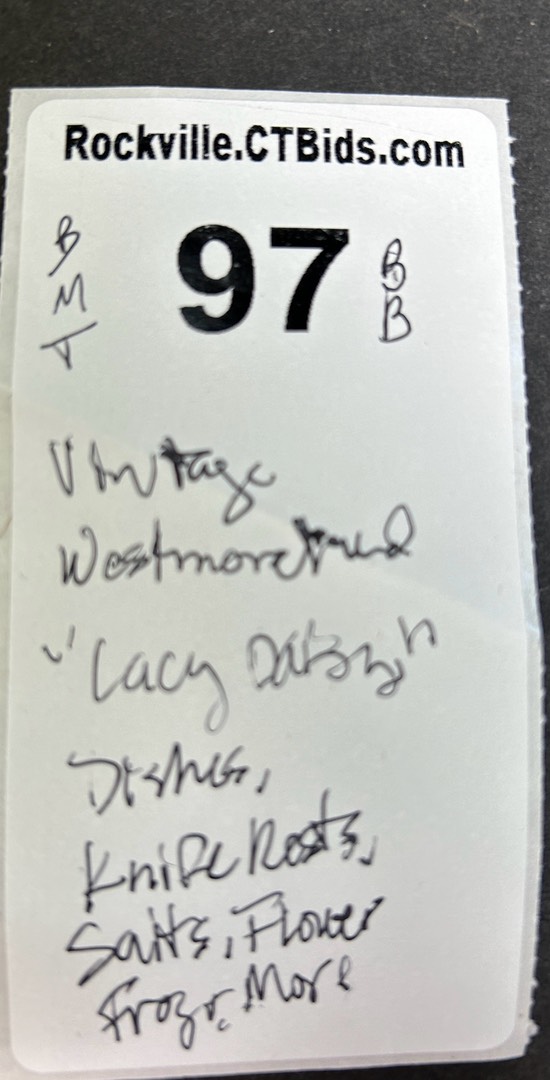 Rockville.CTBids.com
B M T
97
B B
Vintage
Westmoreland
"Lacy Daisy"
Dishes,
Knife Rests,
Salts, Flower
Frog, More